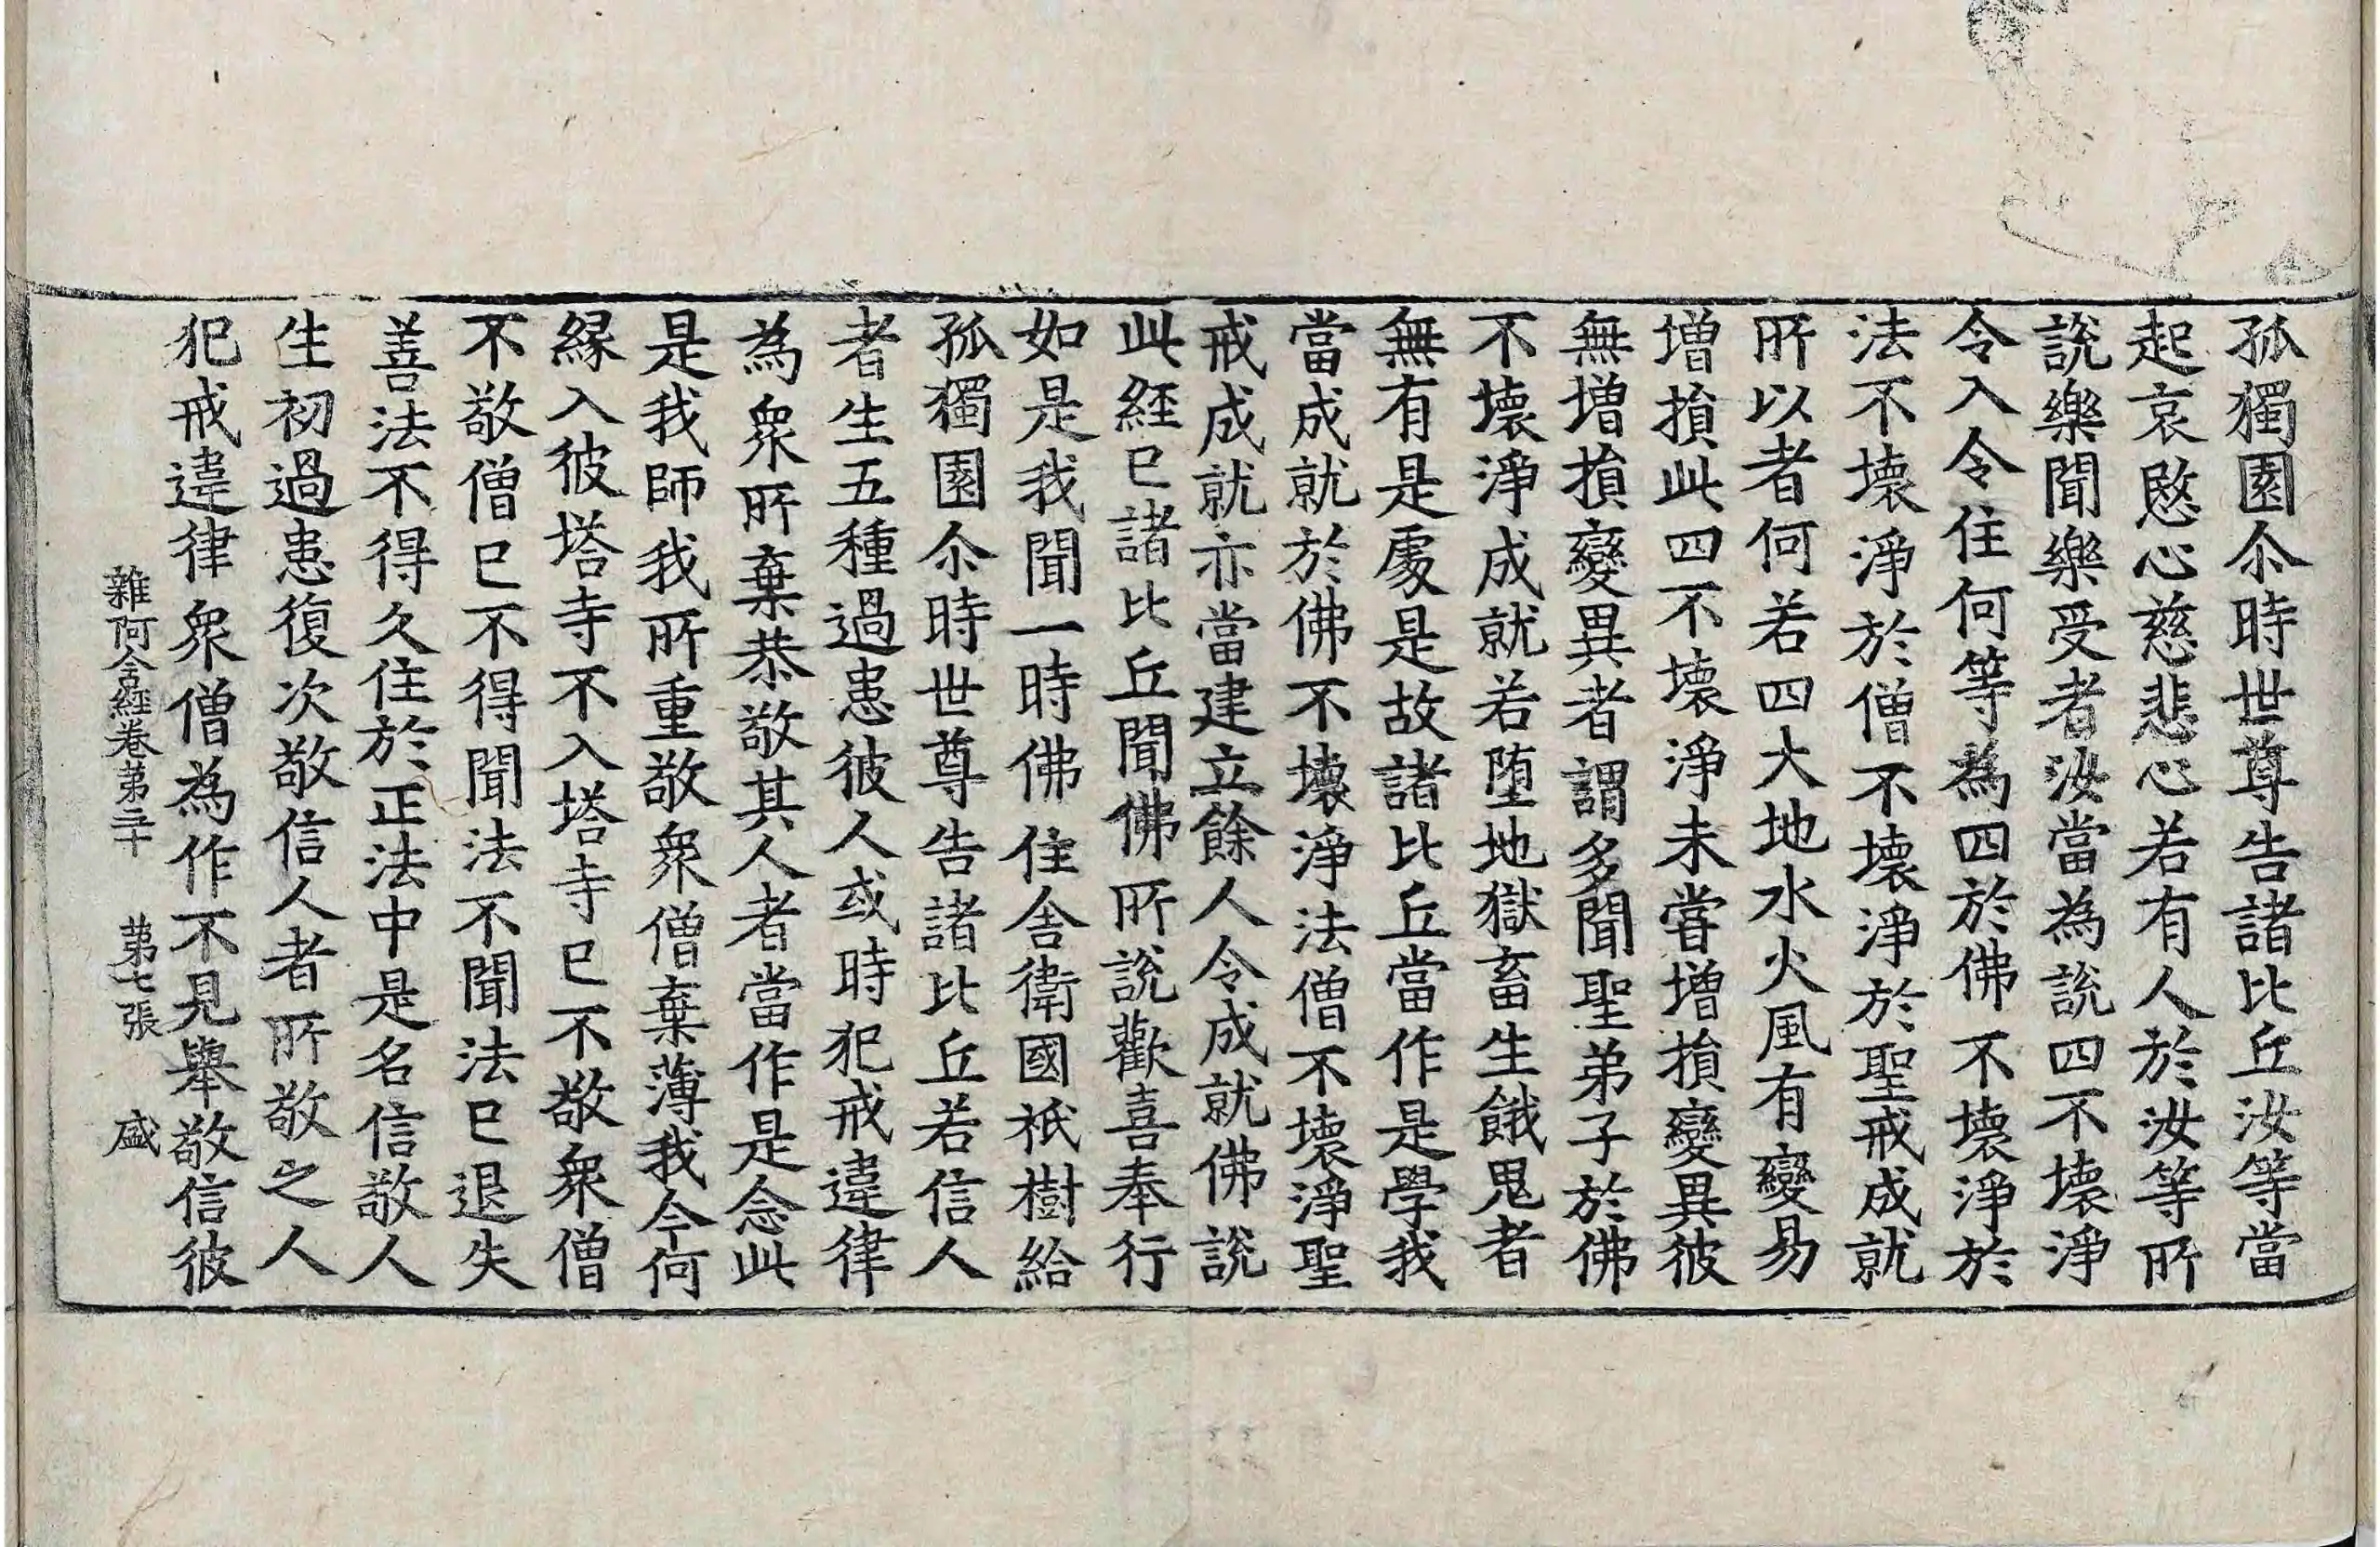 孤獨園尒時世尊告諸比丘汝等當
起哀愍心慈悲心若有人於汝等所
說樂聞樂受者汝當為說四不壞淨
令入令住何等為四於佛不壞淨於
法不壞淨於僧不壞淨於聖戒成就
所以者何若四大地水火風有變易
增損此四不壞淨未甞增損變異彼
無增損變異者謂多聞聖弟子於佛
不壞淨成就若墮地獄畜生餓鬼者
無有是處是故諸比丘當作是學我
當成就於佛不壞淨法僧不壞淨聖
戒成就亦當建立餘人令成就佛說
此經已諸比丘聞佛所說歡喜奉行
如是我聞一時佛住舍衛國祇樹給
孤獨園尒時世尊告諸比丘若信人
者生五種過患彼人或時犯戒違律
為衆所棄恭敬其人者當作是念此
是我師我所重敬衆僧棄薄我今何
緣入彼塔寺不入塔寺已不敬衆僧
不敬僧已不得聞法不聞法已退失
善法不得久住於正法中是名信敬人
生初過患復次敬信人者所敬之人
犯戒違律衆僧為作不見舉敬信彼
雜阿含經卷第三十 第七張 盛